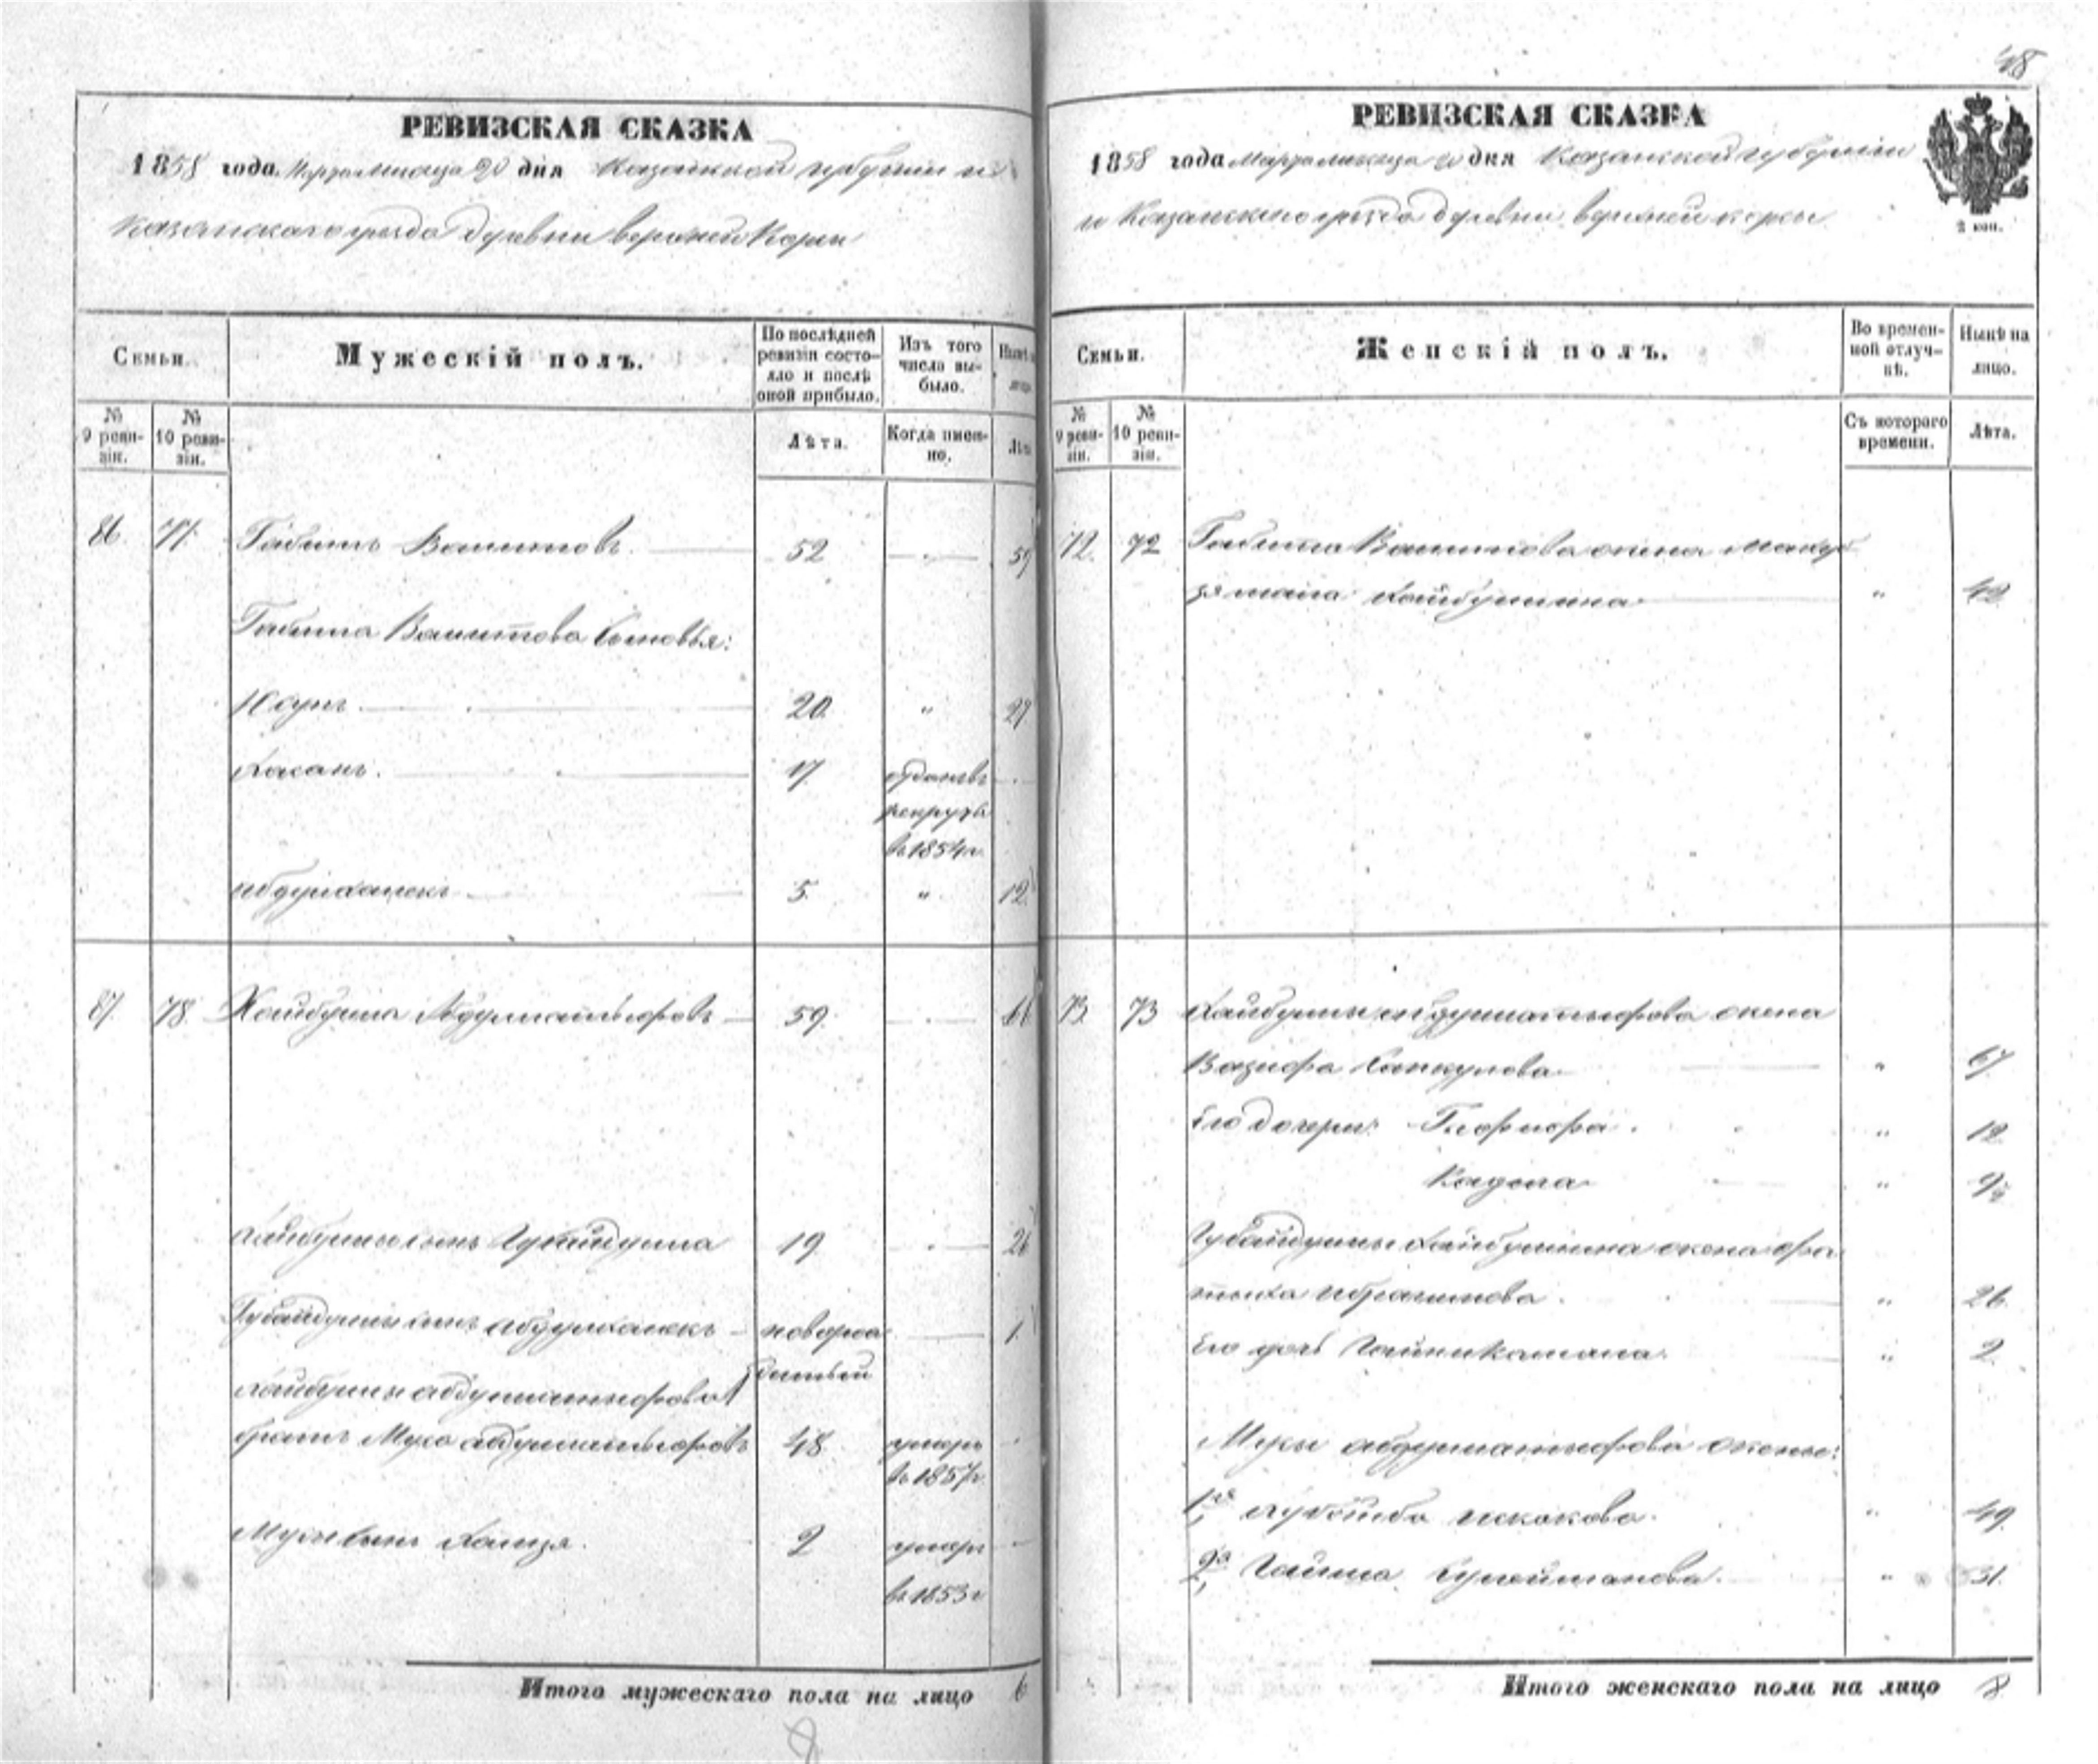 48
РЕВИЗСКАЯ СКАЗКА
1858 года Марта месяца 20 дня Казанской губернии и
Казанскаго уезда деревни верхней Корсы
Семьи.
Мужескій полъ.
По послѣдней ревизіи состояло и послѣ оной прибыло.
Изъ того числа выбыло.
№ 9 ревизіи.
№ 10 ревизіи.
Лѣта.
Когда именно.
86. 77. Габитъ Вашитовъ. 52 59
Габита Вашитова сыновья:
Юсупъ. 20 " 27
Хасанъ. 17 отданъ въ
рекруты
въ 1854 г.
5. " 12
87. 78. Хайбулла Абдуллатыфовъ 59. 66
Хайбуллы сынъ Губайдулла 19. 26
Губайдуллы сынъ новорож- 1.
денный
Хайбуллы абдуллатыфова
братъ Муса абдуллатыфовъ 48. умеръ
въ 1857 г.
Мусы сынъ Хамзя. 2 умеръ
въ 1853 г
Итого мужескаго пола на лицо 6
8
РЕВИЗСКАЯ СКАЗКА
1858 года Марта месяца 20 дня Казанской губернии
и Казанскаго уезда деревни верхней корсы
2 коп.
Семьи.
Женскій полъ.
Во временной отлучкѣ.
Нынѣ на лицо.
№ 9 ревизіи.
№ 10 ревизіи.
Съ котораго времени.
Лѣта.
72. 72 Габита Вашитова жена
Хайбуллина " 42
73. 73 Хайбуллы абдуллатыфова жена
Вазифа " 67
Его дочери: " 12
"
Губайдуллы Хайбуллина жена фа-
тыха ибрагимова. " 26.
Его дочь " 2.
Мусы абдуллатыфова жены:
1я исхакова. " 49
2я Гайша Сулейманова. " 31.
Итого женскаго пола на лицо 8